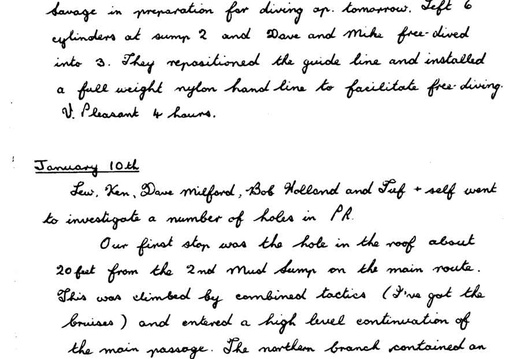 Savage in preparation for diving op. tomorrow. Left 6
cylinders at sump 2 and Dave and Mike free-dived
into 3. They repositioned the guide line and installed
a full weight nylon hand line to facilitate free-diving.
V. Pleasant 4 hours.
January 10th
Lew, Ken, Dave Milford, Bob Holland and Tuf + self went
to investigate a number of holes in PR.
Our first stop was the hole in the roof about
20 feet from the 2nd Mud Sump on the main route.
This was climbed by combined tactics (I've got the
bruises) and entered a high level continuation of
the main passage. The northern branch contained an